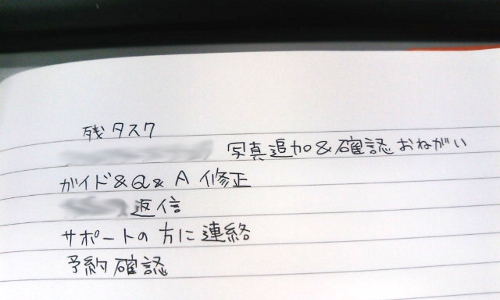 残タスク
写真追加&確認おねがい
ガイド&Q&A修正
返信
サポートの方に連絡
予約確認